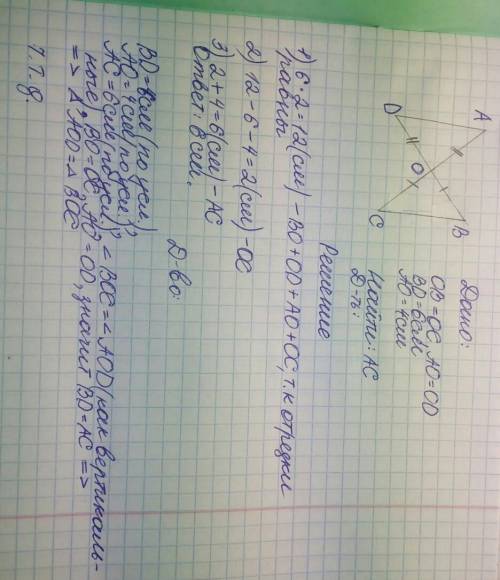 A
B
D
O
C
Дано:
OB=OC, AO=OD
BD=6см
AO=4см
Найти: AC
Д-ть:
Решение
1) 6·2=12(см) – BO+OD+AO+OC, т.к отрезки
равны
2) 12-6-4=2(см) -OC
3) 2+4=6(см) – AC
Ответ: 6см.
Д-во:
BD=6см(по усл)
AO=4см(по усл.)
AC=6см(по усл) ∠BOC=∠AOD(как вертикаль-
ные), BO=OC, AO=OD, значит BD=AC =>
=> Δ AOD=Δ BOC
ч.т.д.